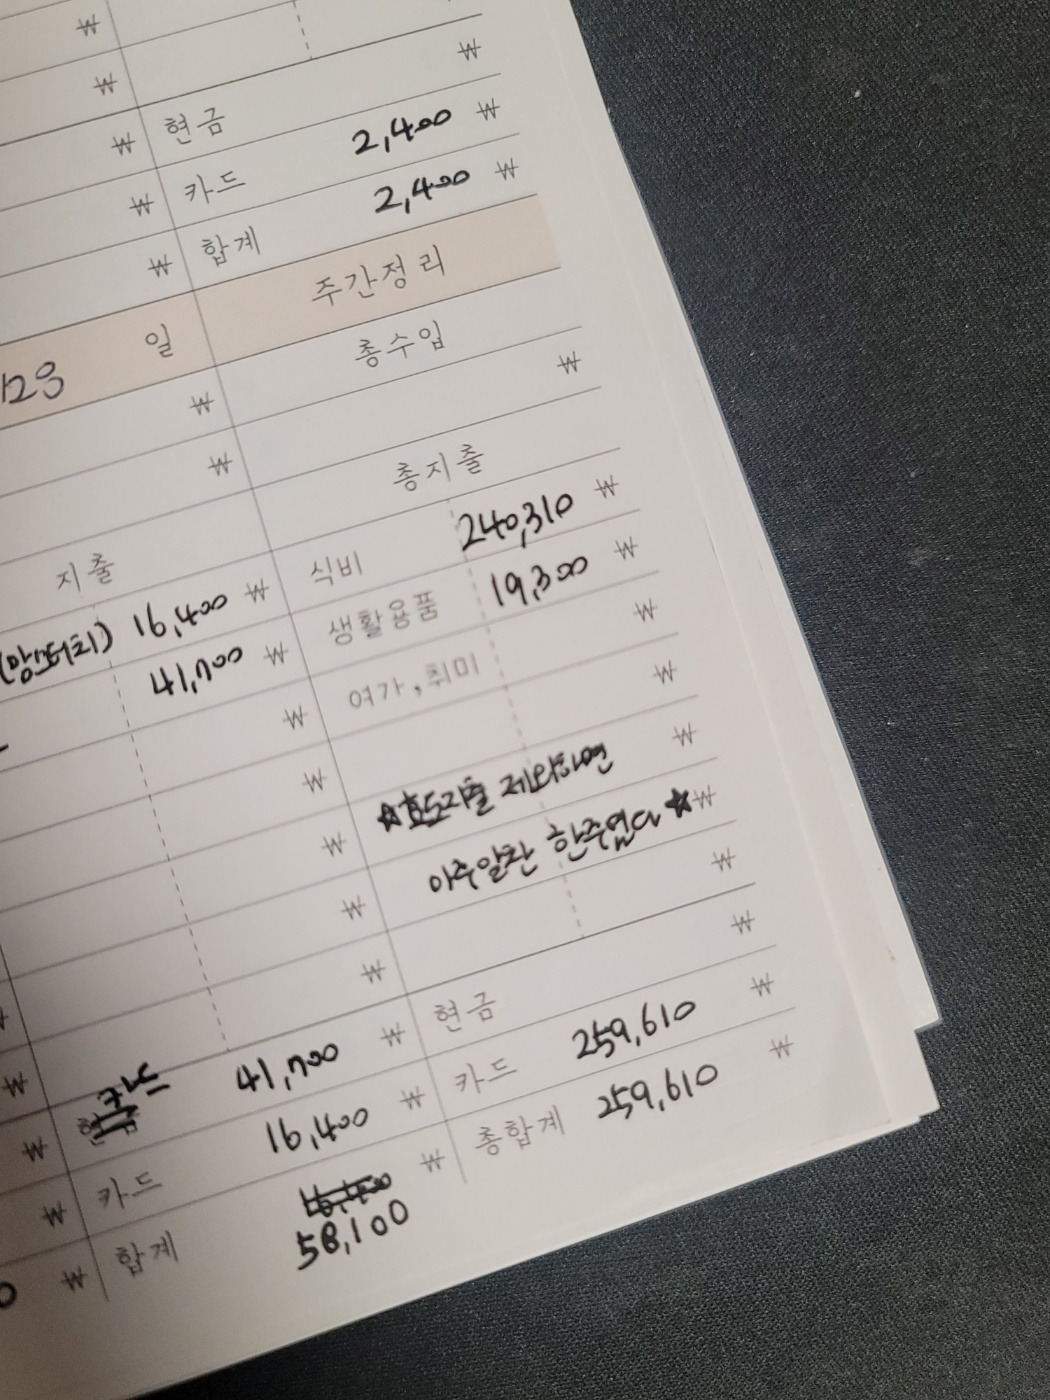 ₩
₩
₩
₩
₩
₩
현금 2,400 ₩
카드 2,400 ₩
합계
일
₩
₩
지출
16,400 ₩
41,700 ₩
₩
₩
₩
₩
₩
카드 41,700 ₩
카드 16,400 ₩
합계 58,100 ₩
주간정리
총수입
₩
총지출
식비 240,310 ₩
생활용품 19,300 ₩
여가,취미 ₩
₩
₩
☆효도지출 제외하면
아주알찬 한주였다☆ ₩
₩
₩
현금
카드 259,610 ₩
총합계 259,610 ₩
₩
₩
₩
₩